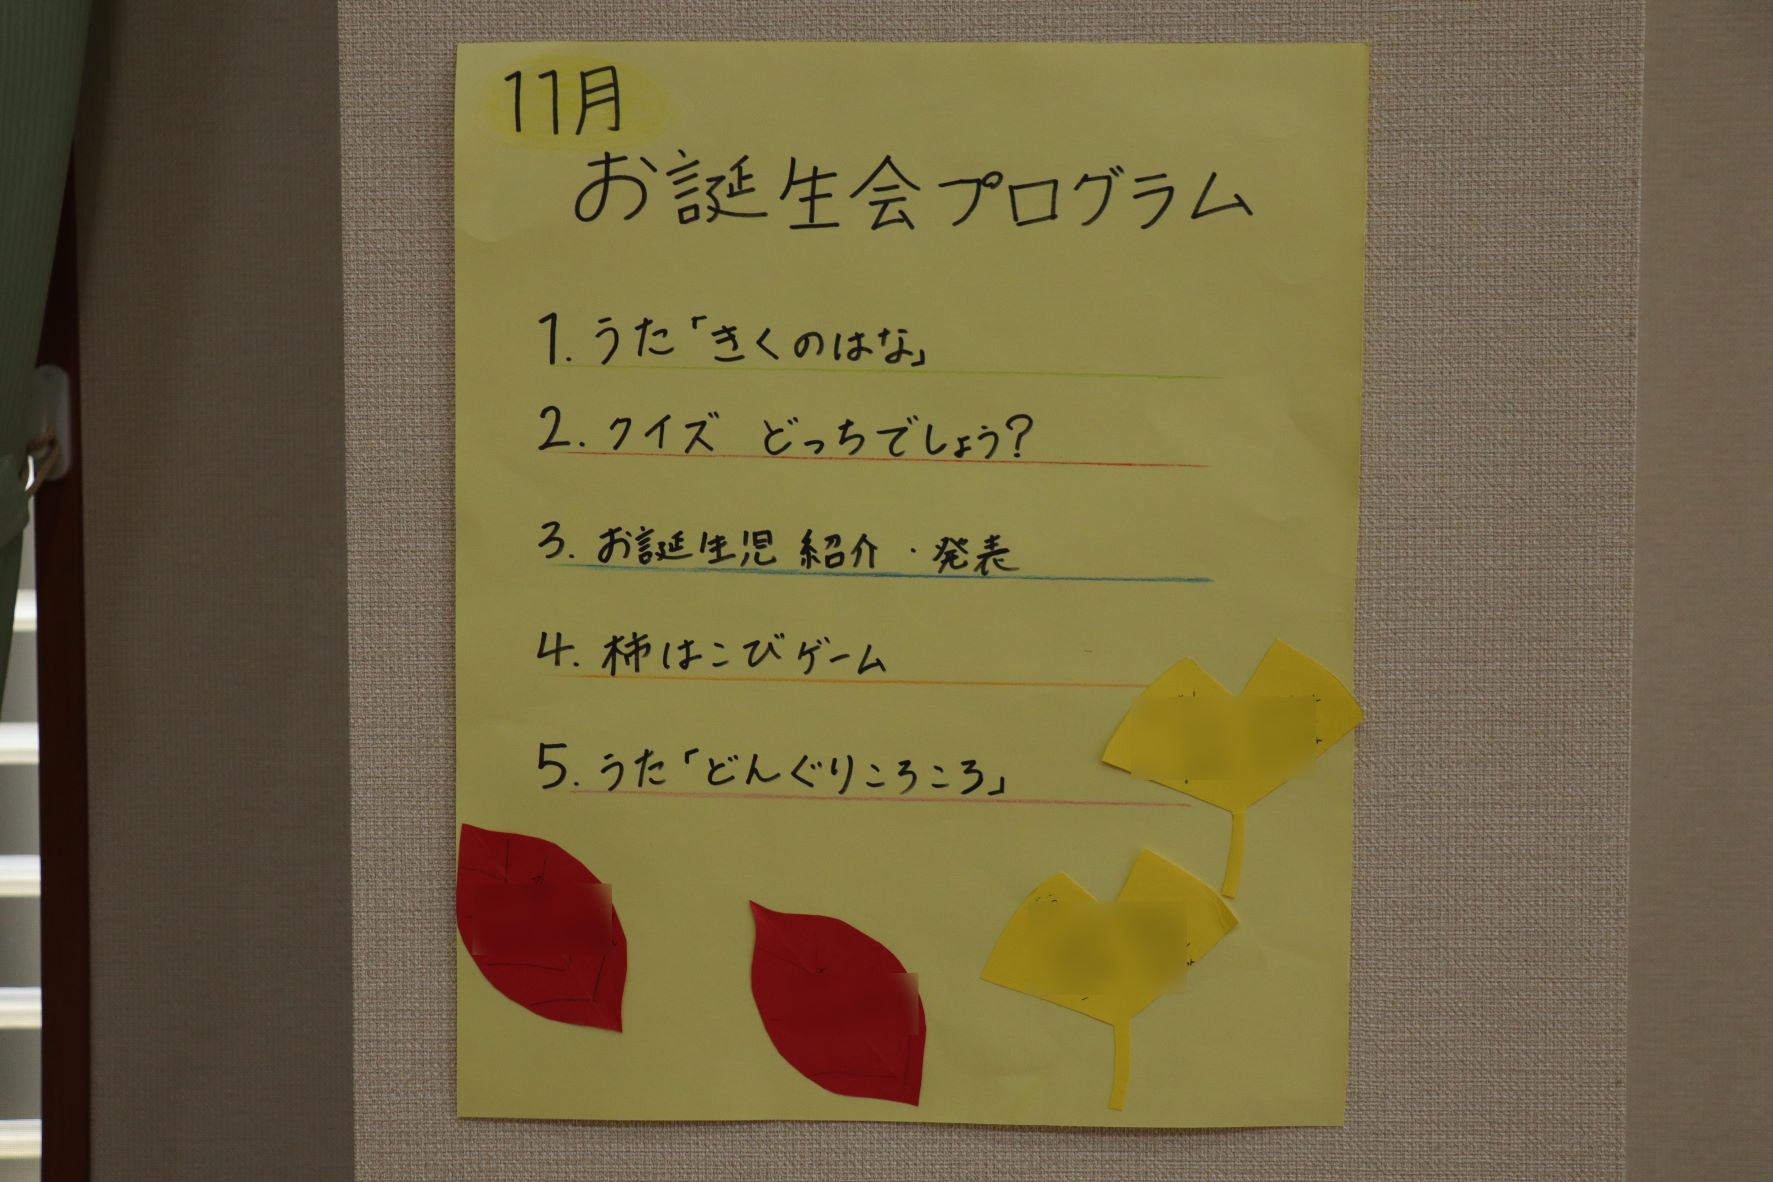 11月
お誕生会プログラム
1. うた「きくのはな」
2. クイズ どっちでしょう?
3. お誕生児 紹介・発表
4. 柿はこびゲーム
5. うた「どんぐりころころ」